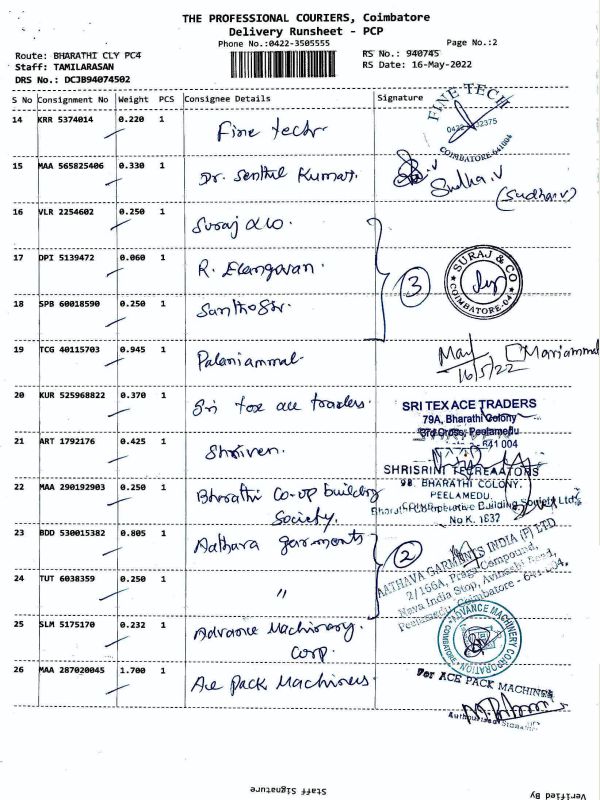 THE PROFESSIONAL COURIERS, Coimbatore
Delivery Runsheet - PCP
Phone No.:0422-3505555
Page No.:2
Route: BHARATHI CLY PC4
RS No.: 940745
Staff: TAMILARASAN
RS Date: 16-May-2022
DRS No.: DCJB94074502
S No Consignment No Weight PCS Consignee Details Signature
14 KRR 5374014 0.220 1 Fine tech
FINE TECH
COIMBATORE-641004
15 MAA 565825406 0.330 1 Dr. Senthil Kumar.
Sudha.V
(Sudha.V)
16 VLR 2254602 0.250 1 Suraj &co.
17 DPI 5139472 0.060 1 R. Elangovan.
3
SURAJ & CO
COIMBATORE-04
18 SPB 60018590 0.250 1
19 TCG 40115703 0.945 1 Palaniammal
Mariammal
16/5/22
20 KUR 525968822 0.370 1 Sri tex ace traders.
SRI TEX ACE TRADERS
79A, Bharathi Colony
3rd Cross, Peelamedu
641 004
21 ART 1792176 0.425 1
SHRISRINI TECREAATORS
9B, BHARATHI COLONY,
PEELAMEDU,
22 MAA 290192903 0.250 1 Bharathi Co-op building
Society.
Bharathi Cooperative Building Society Ltd.,
No K. 1637
23 BDD 530015382 0.805 1 Aathava garments
2
AATHAVA GARMENTS INDIA (P) LTD
2/166A, Pragati Compound,
Nava India Stop, Avinashi Road,
Peelamedu, Coimbatore - 641 004.
24 TUT 6038359 0.250 1 "
25 SLM 5175170 0.232 1 Advance Machinery
Corp.
ADVANCE MACHINERY CORPORATION
COIMBATORE
26 MAA 287020045 1.700 1 Ace Pack Machines
For ACE PACK MACHINES
Authorised Signatory
Staff Signature
Verified By